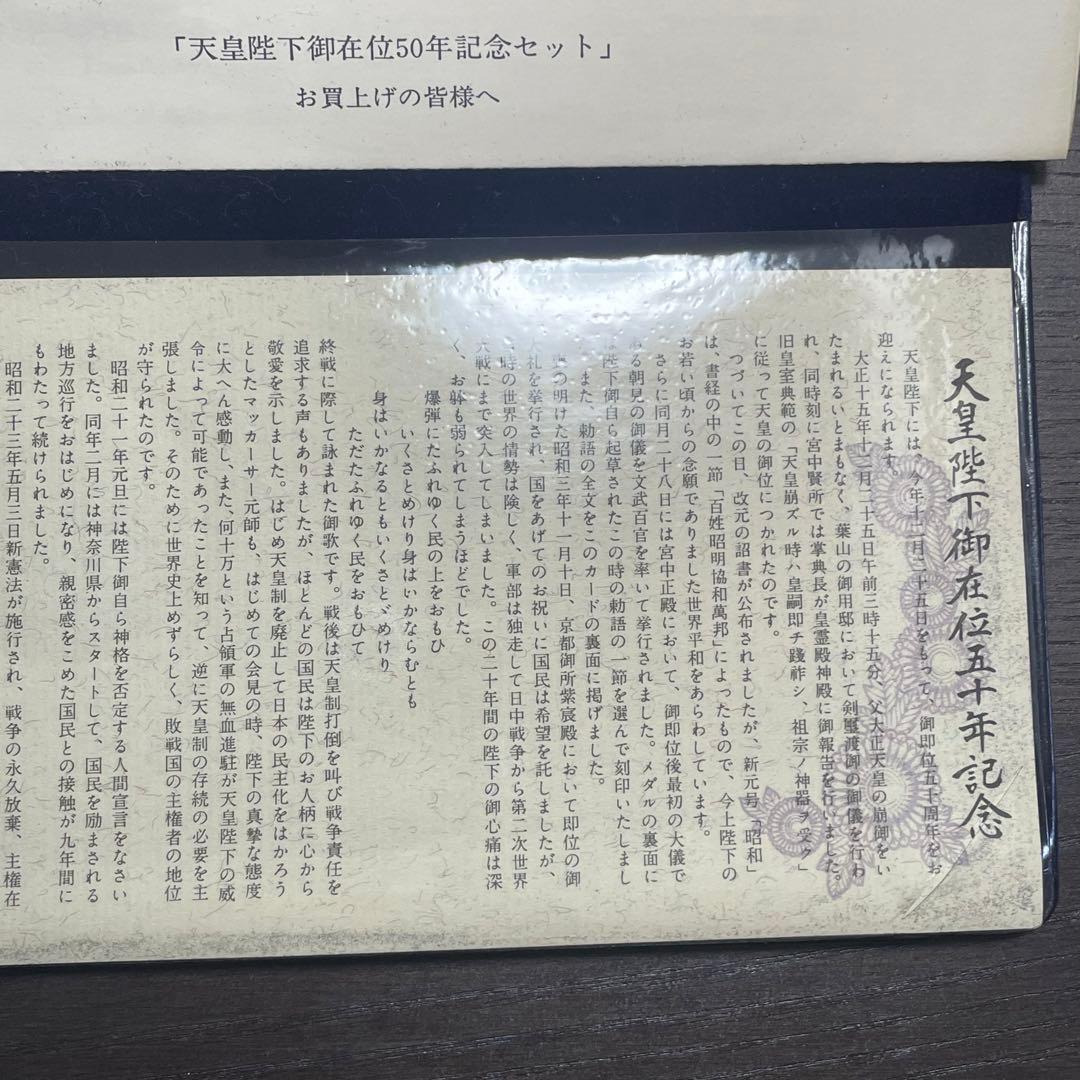 「天皇陛下御在位50年記念セット」
お買上げの皆様へ
天皇陛下御在位五十年記念
天皇陛下には、今年十二月二十五日をもって、御即位五十周年をお
迎えになられます。
大正十五年十二月二十五日午前三時十五分、父大正天皇の崩御をい
たまれるいとまもなく、葉山の御用邸において剣璽渡御の御儀を行わ
れ、同時刻に宮中賢所では掌典長が皇霊殿神殿に御報告を行いました。
旧皇室典範の「天皇崩ズル時ハ皇嗣即チ踐祚シ、祖宗ノ神器ヲ受ク」
に従って天皇の御位につかれたのです。
つづいてこの日、改元の詔書が公布されましたが、新元号「昭和」
は、書経の中の一節「百姓昭明協和萬邦」によったもので、今上陛下の
お若い頃からの念願でありました世界平和をあらわしています。
さらに同月二十八日には宮中正殿において、御即位後最初の大儀で
ある朝見の御儀を文武百官を率いて挙行されました。メダルの裏面に
は陛下御自ら起草されたこの時の勅語の一節を選んで刻印いたしまし
また、勅語の全文をこのカードの裏面に掲げました。
の明けた昭和三年十一月十日、京都御所紫宸殿において即位の御
大礼を挙行され、国をあげてのお祝いに国民は希望を託しましたが、
時の世界の情勢は険しく、軍部は独走して日中戦争から第二次世界
大戦にまで突入してしまいました。この二十年間の陛下の御心痛は深
く、お躰も弱られてしまうほどでした。
爆弾にたふれゆく民の上をおもひ
いくさとめけり身はいかならむとも
身はいかなるともいくさとゞめけり
ただたふれゆく民をおもひて
終戦に際して詠まれた御歌です。戦後は天皇制打倒を叫び戦争責任を
追求する声もありましたが、ほとんどの国民は陛下のお人柄に心から
敬愛を示しました。はじめ天皇制を廃止して日本の民主化をはかろう
としたマッカーサー元師も、はじめての会見の時、陛下の真摯な態度
に大へん感動し、また、何十万という占領軍の無血進駐が天皇陛下の威
令によって可能であったことを知って、逆に天皇制の存続の必要を主
張しました。そのために世界史上めずらしく、敗戦国の主権者の地位
が守られたのです。
昭和二十一年元旦には陛下御自ら神格を否定する人間宣言をなさい
ました。同年二月には神奈川県からスタートして、国民を励まされる
地方巡行をおはじめになり、親密感をこめた国民との接触が九年間に
もわたって続けられました。
昭和二十三年五月三日新憲法が施行され、戦争の永久放棄、主権在